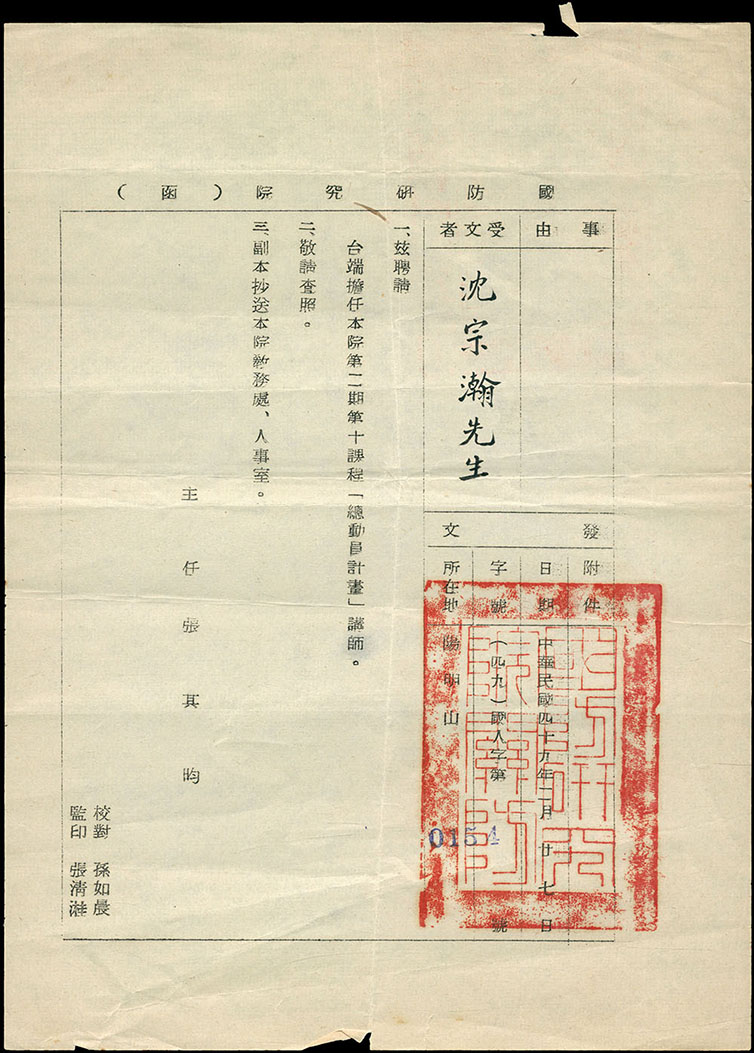 國防研究院（函）
事由
受文者
沈宗瀚先生
發文
附件
日期
中華民國四十九年二月廿七日
字號
（四九）國人字第0154號
所在地
陽明山
一、茲聘請
台端擔任本院第二期第十課程「總動員計畫」講師。
二、敬請查照。
三、副本抄送本院教務處、人事室。
主任張其昀
校對 孫如晨
監印 張清